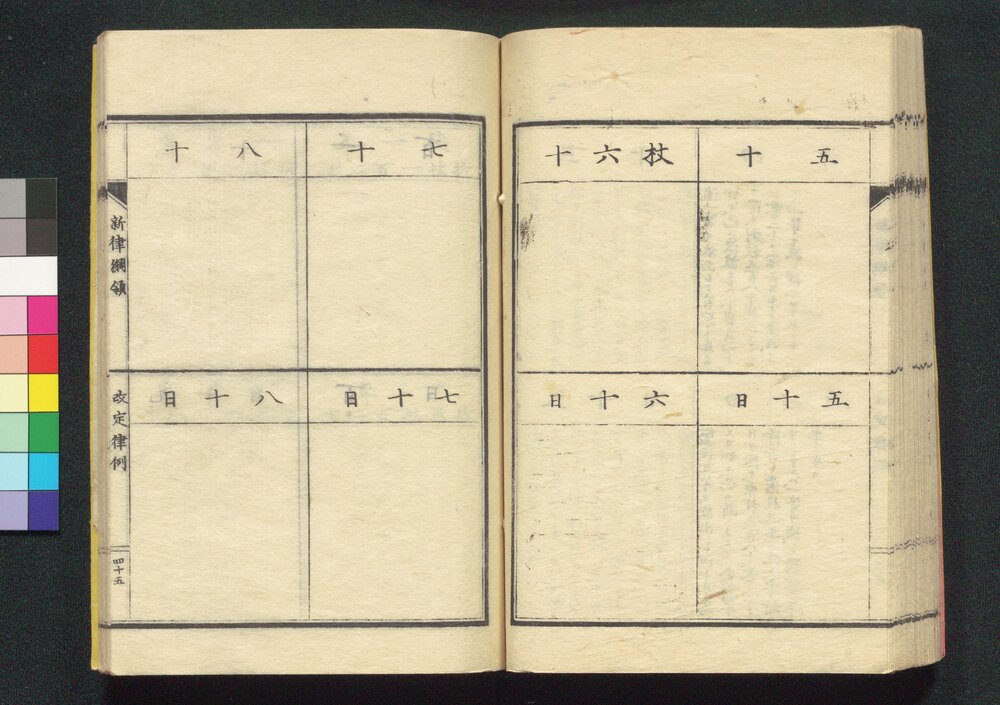 五十
杖六十
五十日
六十日
七十
八十
七十日
八十日
新律綱領
改定律例
四十五